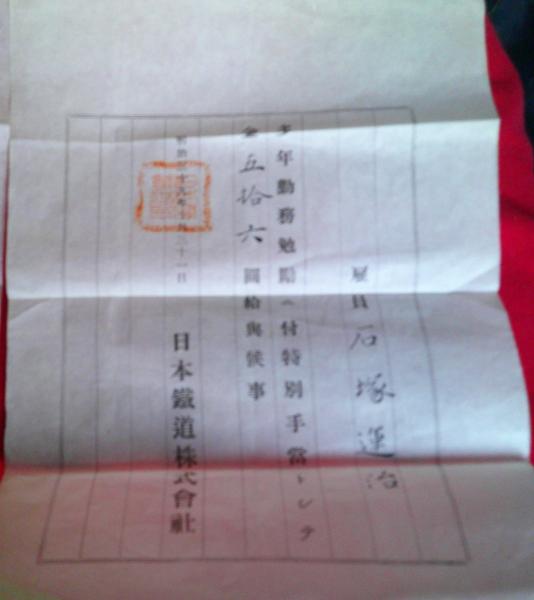 雇員 石塚運治
多年勤務勉勵ニ付特別手當トシテ
金五拾六圓給與候事
明治三十九年十月三十一日
日本鐵道株式會社